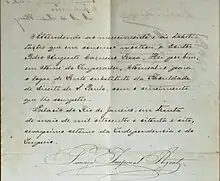 Attendendo ao merecimento e ás habili-
tações que em concurso mostrou o Doutor
Pedro Augusto Carneiro Lessa, Hei por bem,
em Nome do Imperador, Nomeal-o para
o logar de Lente substituto da Faculdade
de Direito de S. Paulo, com o vencimento
que lhe competir.
Palacio do Rio de Janeiro, em trinta
de maio de mil oitocentos e oitenta e oito,
sexagesimo setimo da Independencia e do
Imperio.
Princeza Imperial Regente